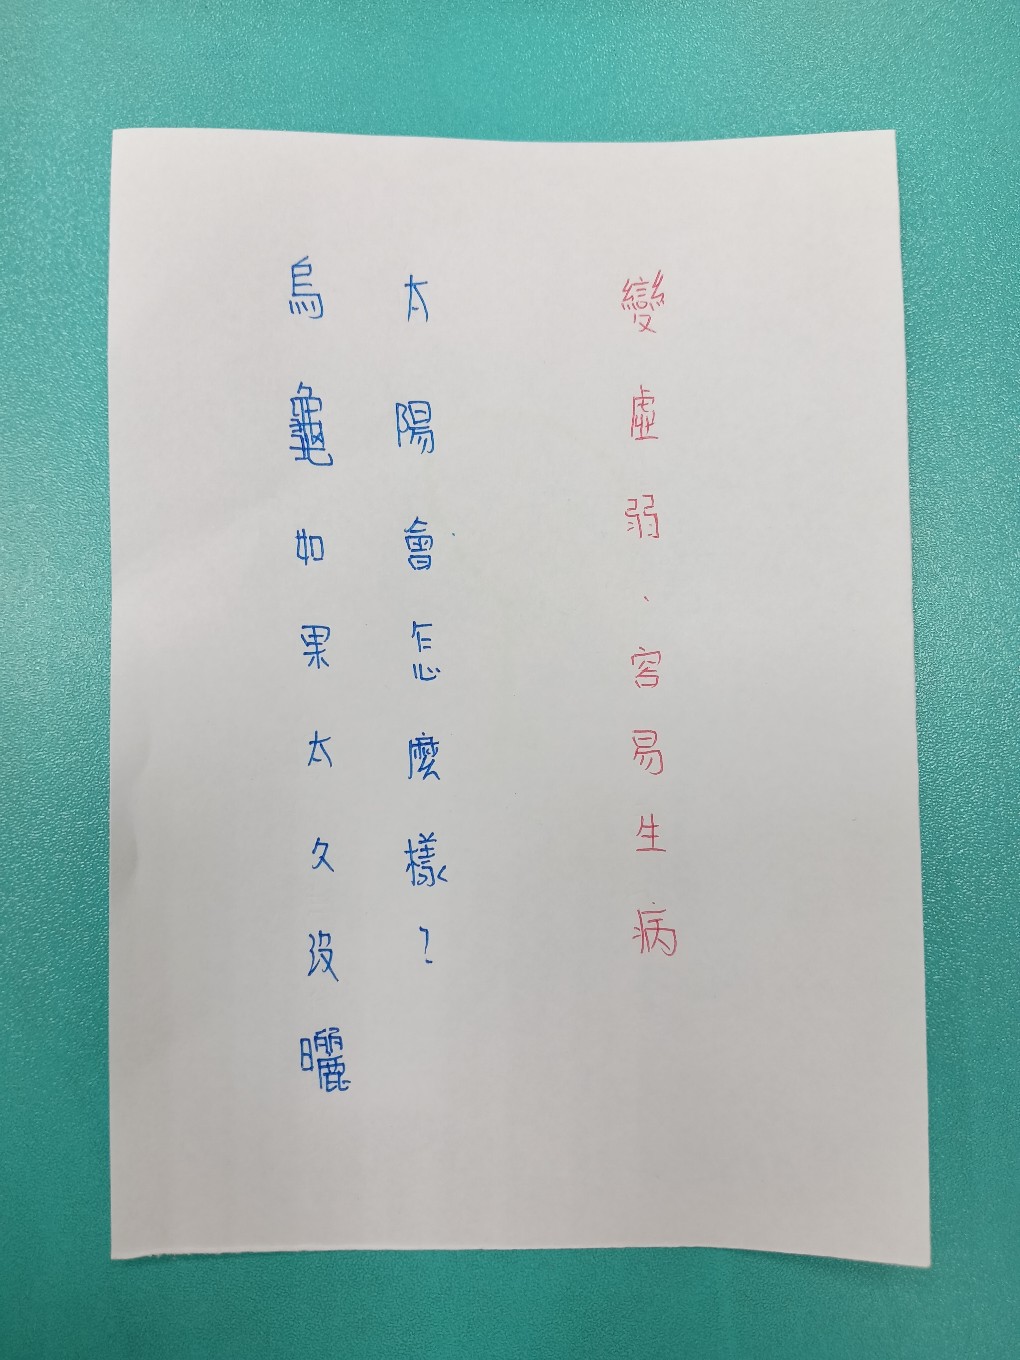 烏龜如果太久沒曬
太陽會怎麼樣?
變虛弱、容易生病